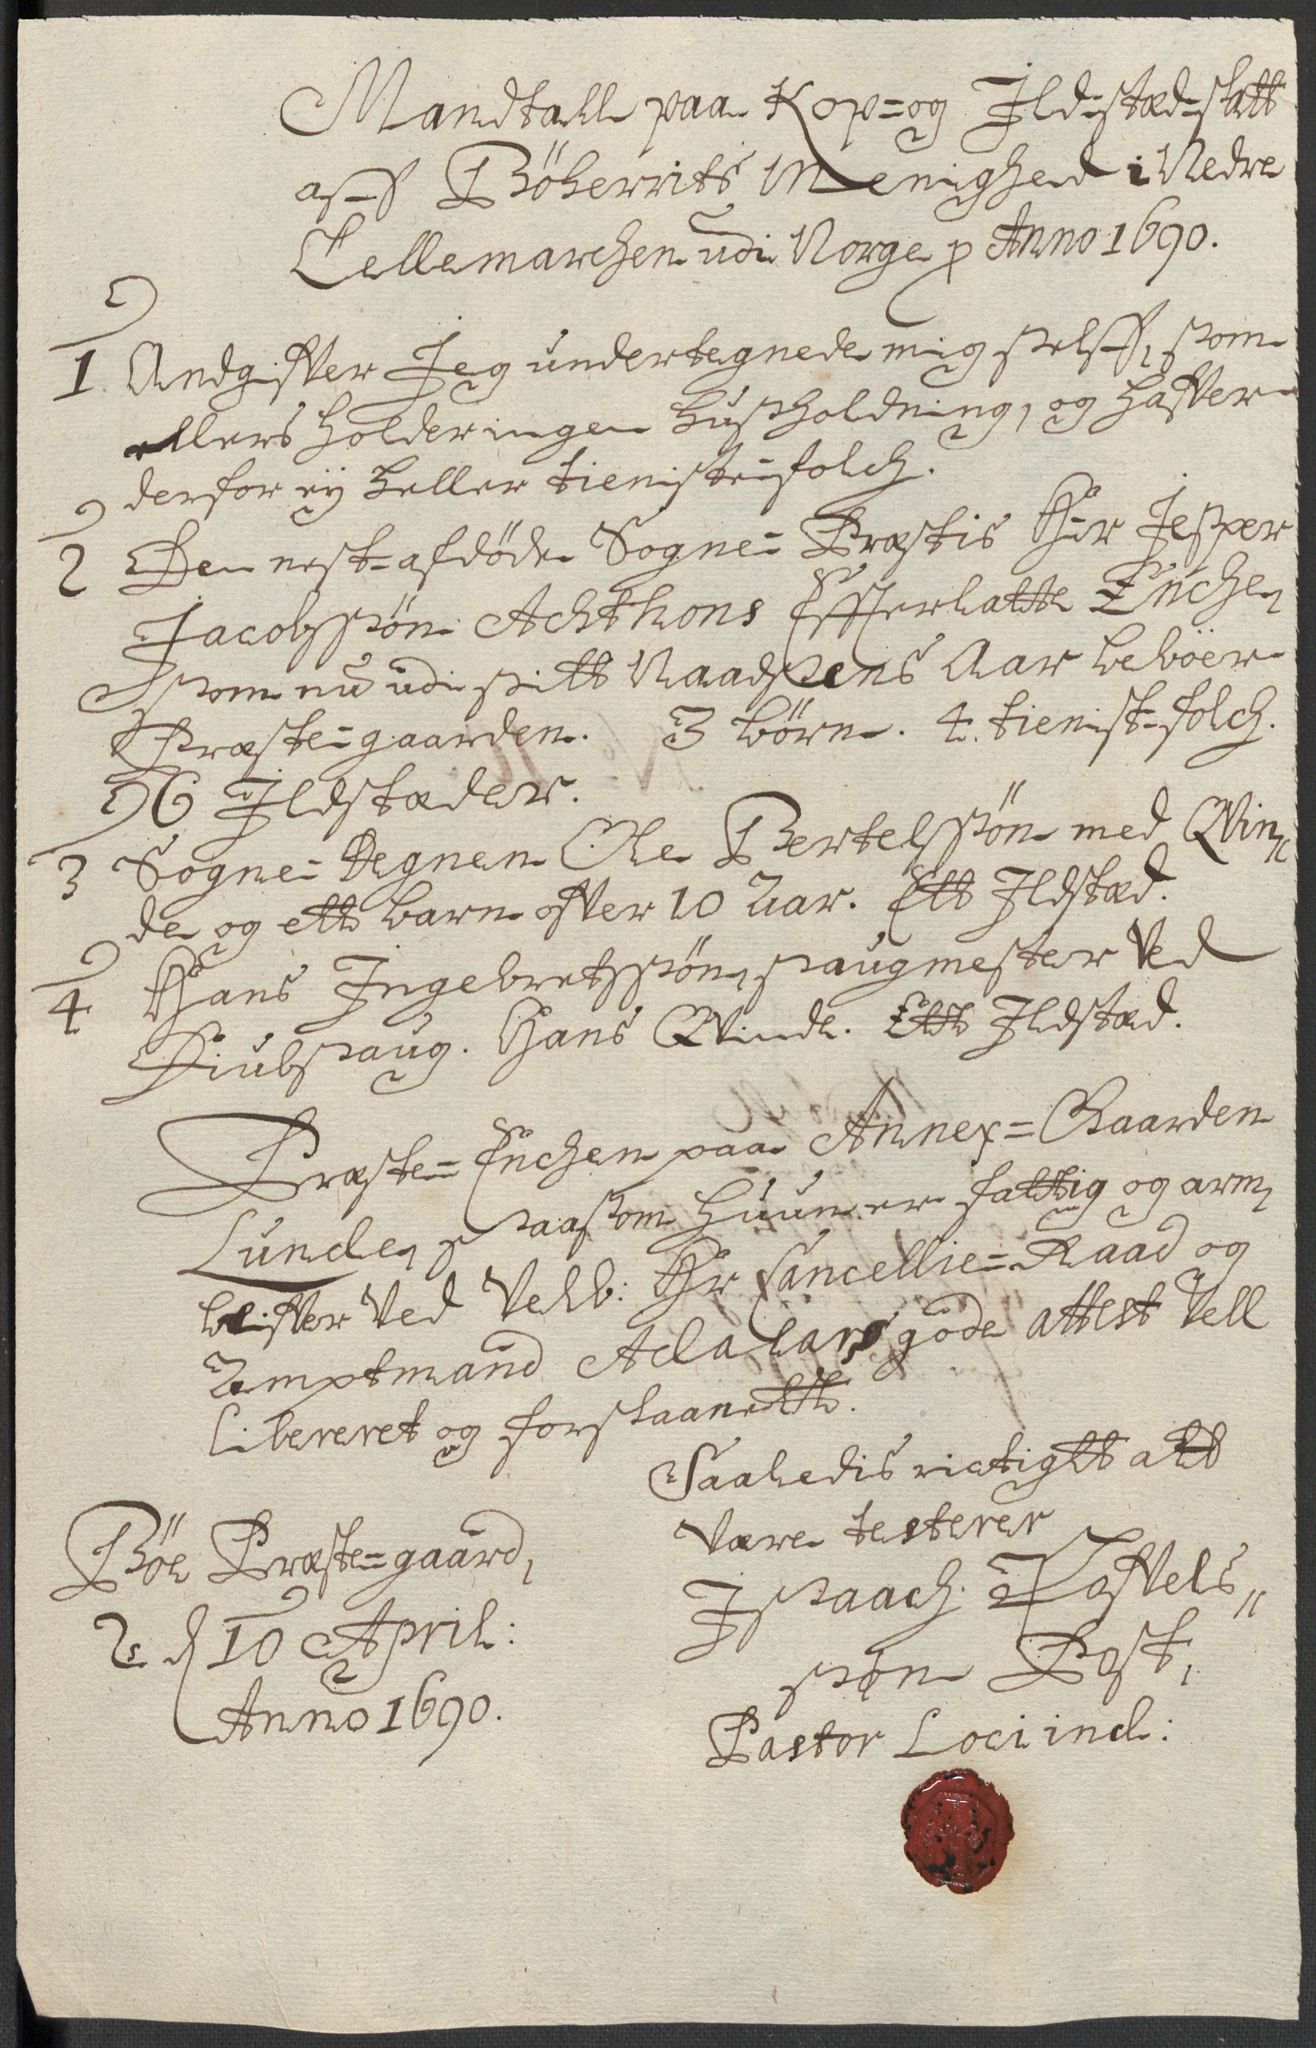 Mandtall paa Kop= og Ild=stæd=skatt
aff Böherrits Menighed i Nedre
Tellemarchen udi Norge p Anno 1690.
1 Andgiffver Jeg undertegnede mig selff, som
ellers holder ingen huusholdning, og haffver
derfor ey heller tieniste=folch.
2 Den nest=afdöde Sogne=Præstis Hr Jesper
Jacobssön Achthons Effterlatte Enche,
som nu udi sitt Naadsens Aar beböer
Præste=gaarden. 3 börn. 4. tienist=folch.
6 Ildstæder.
3 Sogne=Degnen Ole Bertelssön med Qvin=
de og ett barn ofver 10 Aar. Ett Ildstæd.
4 Hans Ingebretssön, saugmester ved
saug. Hans Qvinde. Ett Ildstæd.
Præste=Enchen paa Annex=Gaarden
Lunde, saasom huun er fattig og arm,
blifver ved Velb: Hr Cancellie=Raad og
Amptmand Adelaers gode attest vell
libereret og forskaanett.
Saaledis rictigtt att
være testerer
Böe Præste=gaard,
d 10 April:
Anno 1690.
Isaach Toffvels=
søn Post,
Pastor Loci ind: